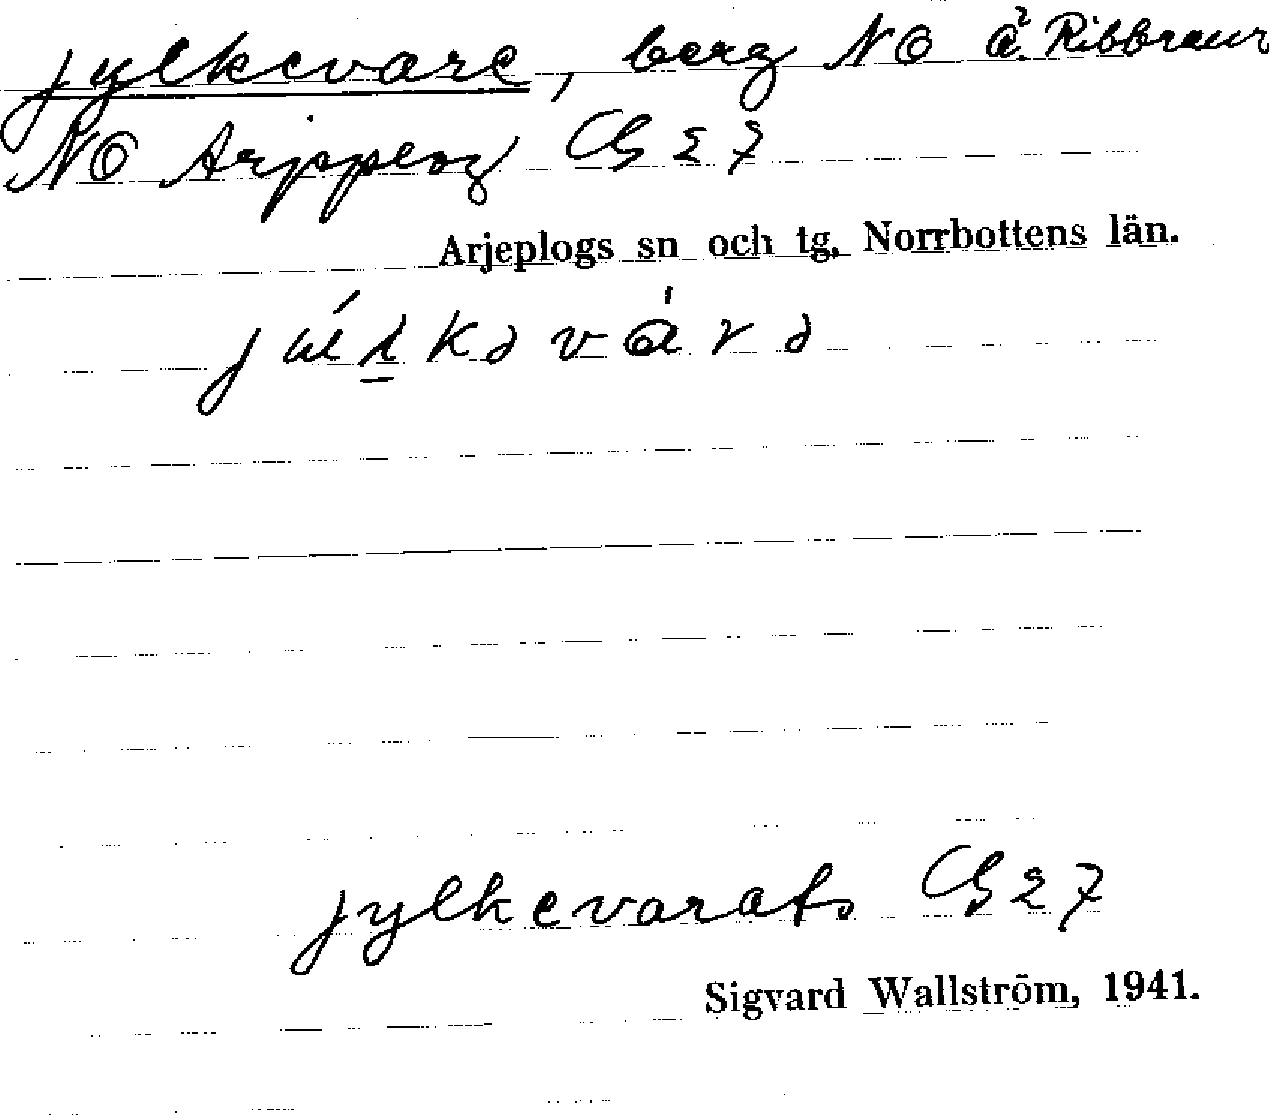 jylkevare, berg NO a² Ribbraur
NO Arjeplog CG 27
Arjeplogs sn och tg, Norrbottens län.
jylkevarats CG 27
Sigvard Wallström, 1941.